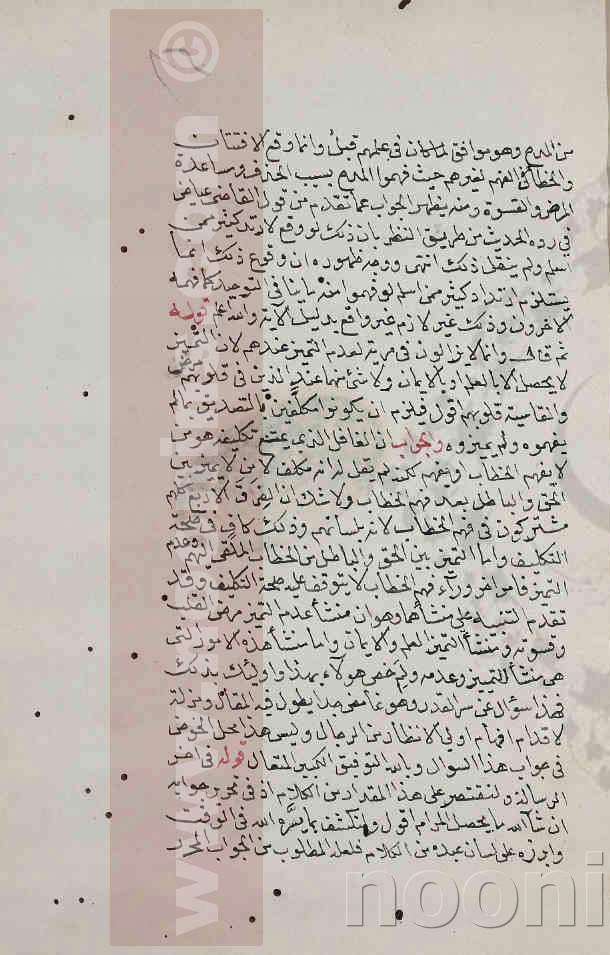 من المدح وهو موافق لما كان في علمهم قبل وانما وقع الافتتان
والخطأ في الفهم لغيرهم حيث فهموا المدح بسبب الحذف ومساعدة
المرض والقسوة ومنه يظهر الجواب عما تقدم من قول القاضي عياض
في رده الحديث من طريق النظر بان ذلك لو وقع لارتد كثير ممن
اسلم ولم ينقل ذلك انتهى ووجه ظهوره ان وقوع ذلك انما
يستلزم ارتداد كثير ممن اسلم لو فهموا منه ما ينافي التوحيد كما فهمه
الاخرون وذلك غير لازم غير واقع بدليل الآية والله اعلم قوله
ثم قال وانما لا يزالون في مرية لعدم التمييز عندهم لان التمييز
لا يحصل الا بالعلم او بالايمان ولا شئ منهما عند الذين في قلوبهم مرض
والقاسية قلوبهم اقول فيلزم ان يكونوا مكلفين بالتصديق بما لم
يفهموه ولم يميزوه والجواب ان الغافل الذي يمتنع تكليفه هو من
لا يفهم الخطاب او يفهم لكن لم يقل له انه مكلف لا من لا يميز بين
الحق والباطل بعد فهم الخطاب ولا شك ان الفرق الاربع كلهم
مشتركون في فهم الخطاب لانه بلسانهم وذلك كاف في صحة
التكليف واما التمييز بين الحق والباطل من الخطاب الملقى اليهم وعدم
التمييز فامر اخر وراء فهم الخطاب لا يتوقف عليه صحة التكليف وقد
تقدم التنبيه على منشأها وهو ان منشأ عدم التمييز مرض القلب
وقسوته ومنشأ التمييز العلم والايمان واما منشأ هذه الامور التي
هي منشأ التمييز وعدمه ولم خص هؤلاء بهذا واولئك بذلك
فهذا سؤال عن سر القدر وهو غامض جدا يطول فيه المقال ومزلة
لاقدام افهام اولي الانظار من الرجال وليس هذا محل الخوض
في جواب هذا السوال وبالله التوفيق الكبير المتعال قوله في اخر
الرسالة ولنقتصر على هذا المقدار من الكلام اذ في تحرير جوابه
ان شاء الله ما يحصل المرام اقول ولنكتف بما يسره الله في الوقت
وابرزه على لسان عبده من الكلام فلعله المطلوب من الجواب المحرر
www.
nooni
©